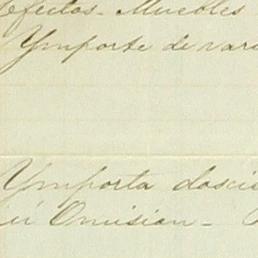 Efectos - Muebles
Ymporte de vari
Ymporta doscie
Omision -